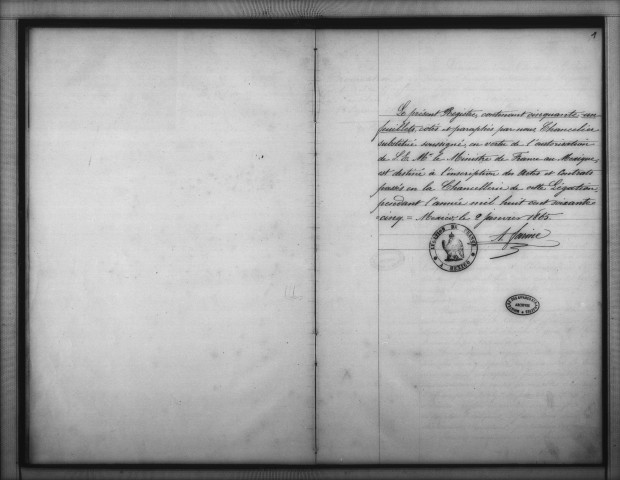 1
Le présent Registre, contenant cinquante un
feuillets, cotés et paraphés par nous Chancelier
substitué soussigné, en vertu de l'autorisation
de S. E. Mr. le Ministre de France au Mexique,
est destiné à l'inscription des Actes et Contrats
passés en la Chancellerie de cette Légation,
pendant l'année mil huit cent soixante
cinq = Mexico, le 2 Janvier 1865
LÉGATION DE FRANCE
À MEXICO
ARCHIVES